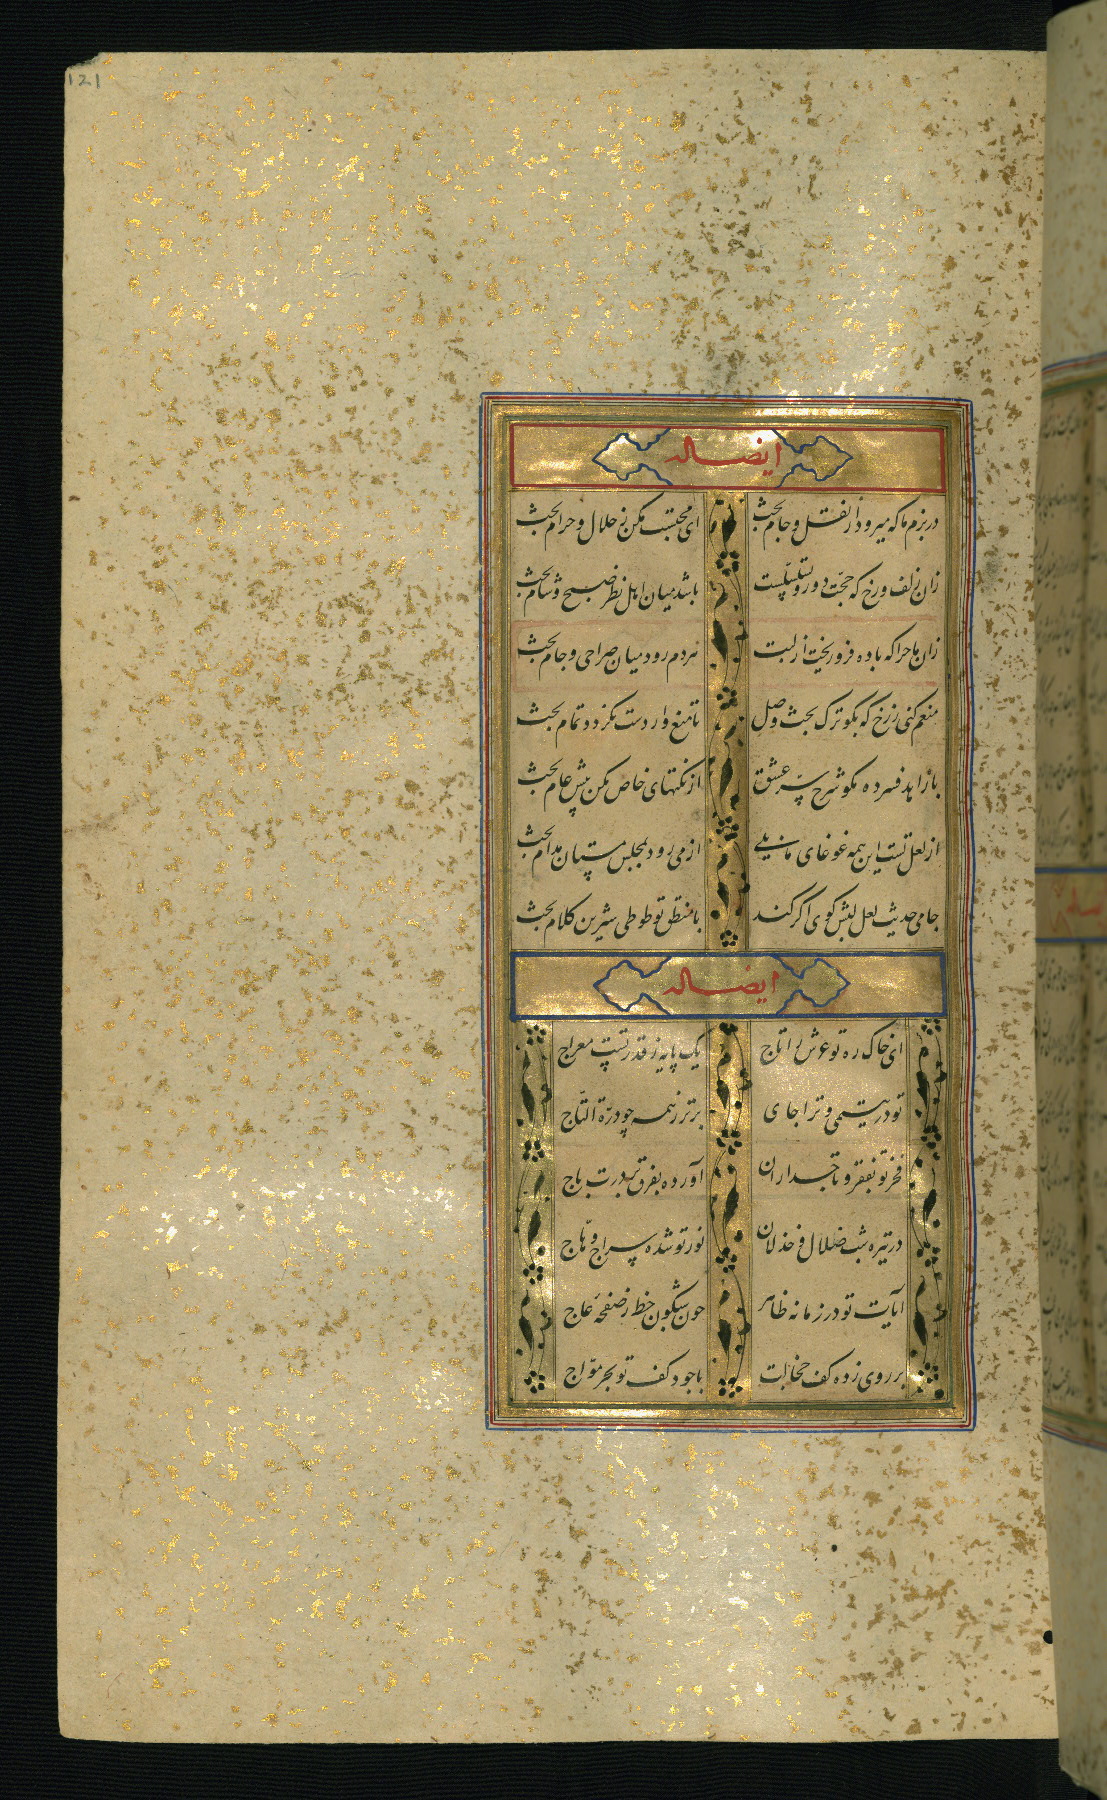 121
ایضا له
در بزم ما که میرود از نقل و جام بحث
ای محتسب مکن ز حلال و حرام بحث
زان زلف و رخ که حجت دور و تسلسلست
باشد میان اهل نظر صبح و شام بحث
زان ماجرا که باده فرو ریخت از لبت
هر دم رود میان صراحی و جام بحث
منعم کنی ز رخ که بگو ترک بحث وصل
تا منع وارد است نگردد تمام بحث
با زاهد فسرده مگو شرح سر عشق
از نکتهای خاص مکن پیش عام بحث
از لعل تست این همه غوغای ما بلی
از می رود بمجلس مستان مدام بحث
جامی حدیث لعل لبش کوی اگر کند
با منطق تو طوطی شیرین کلام بحث
ایضا له
ای خاک ره تو عرش را تاج
یک پایه ز قدر تست معراج
تو در یتیمی و ترا جای
برتر ز همه چو درة التاج
فخر تو بفقر و تاجداران
آورده بفرق بر درت باج
در تیره شب ضلال و خذلان
نور تو شده سراج وهاج
آیات تو در زمانه ظاهر
چون شبگون خط ز صفحهٔ عاج
بر روی زده کف خجالت
با جود کف تو بحر مواج